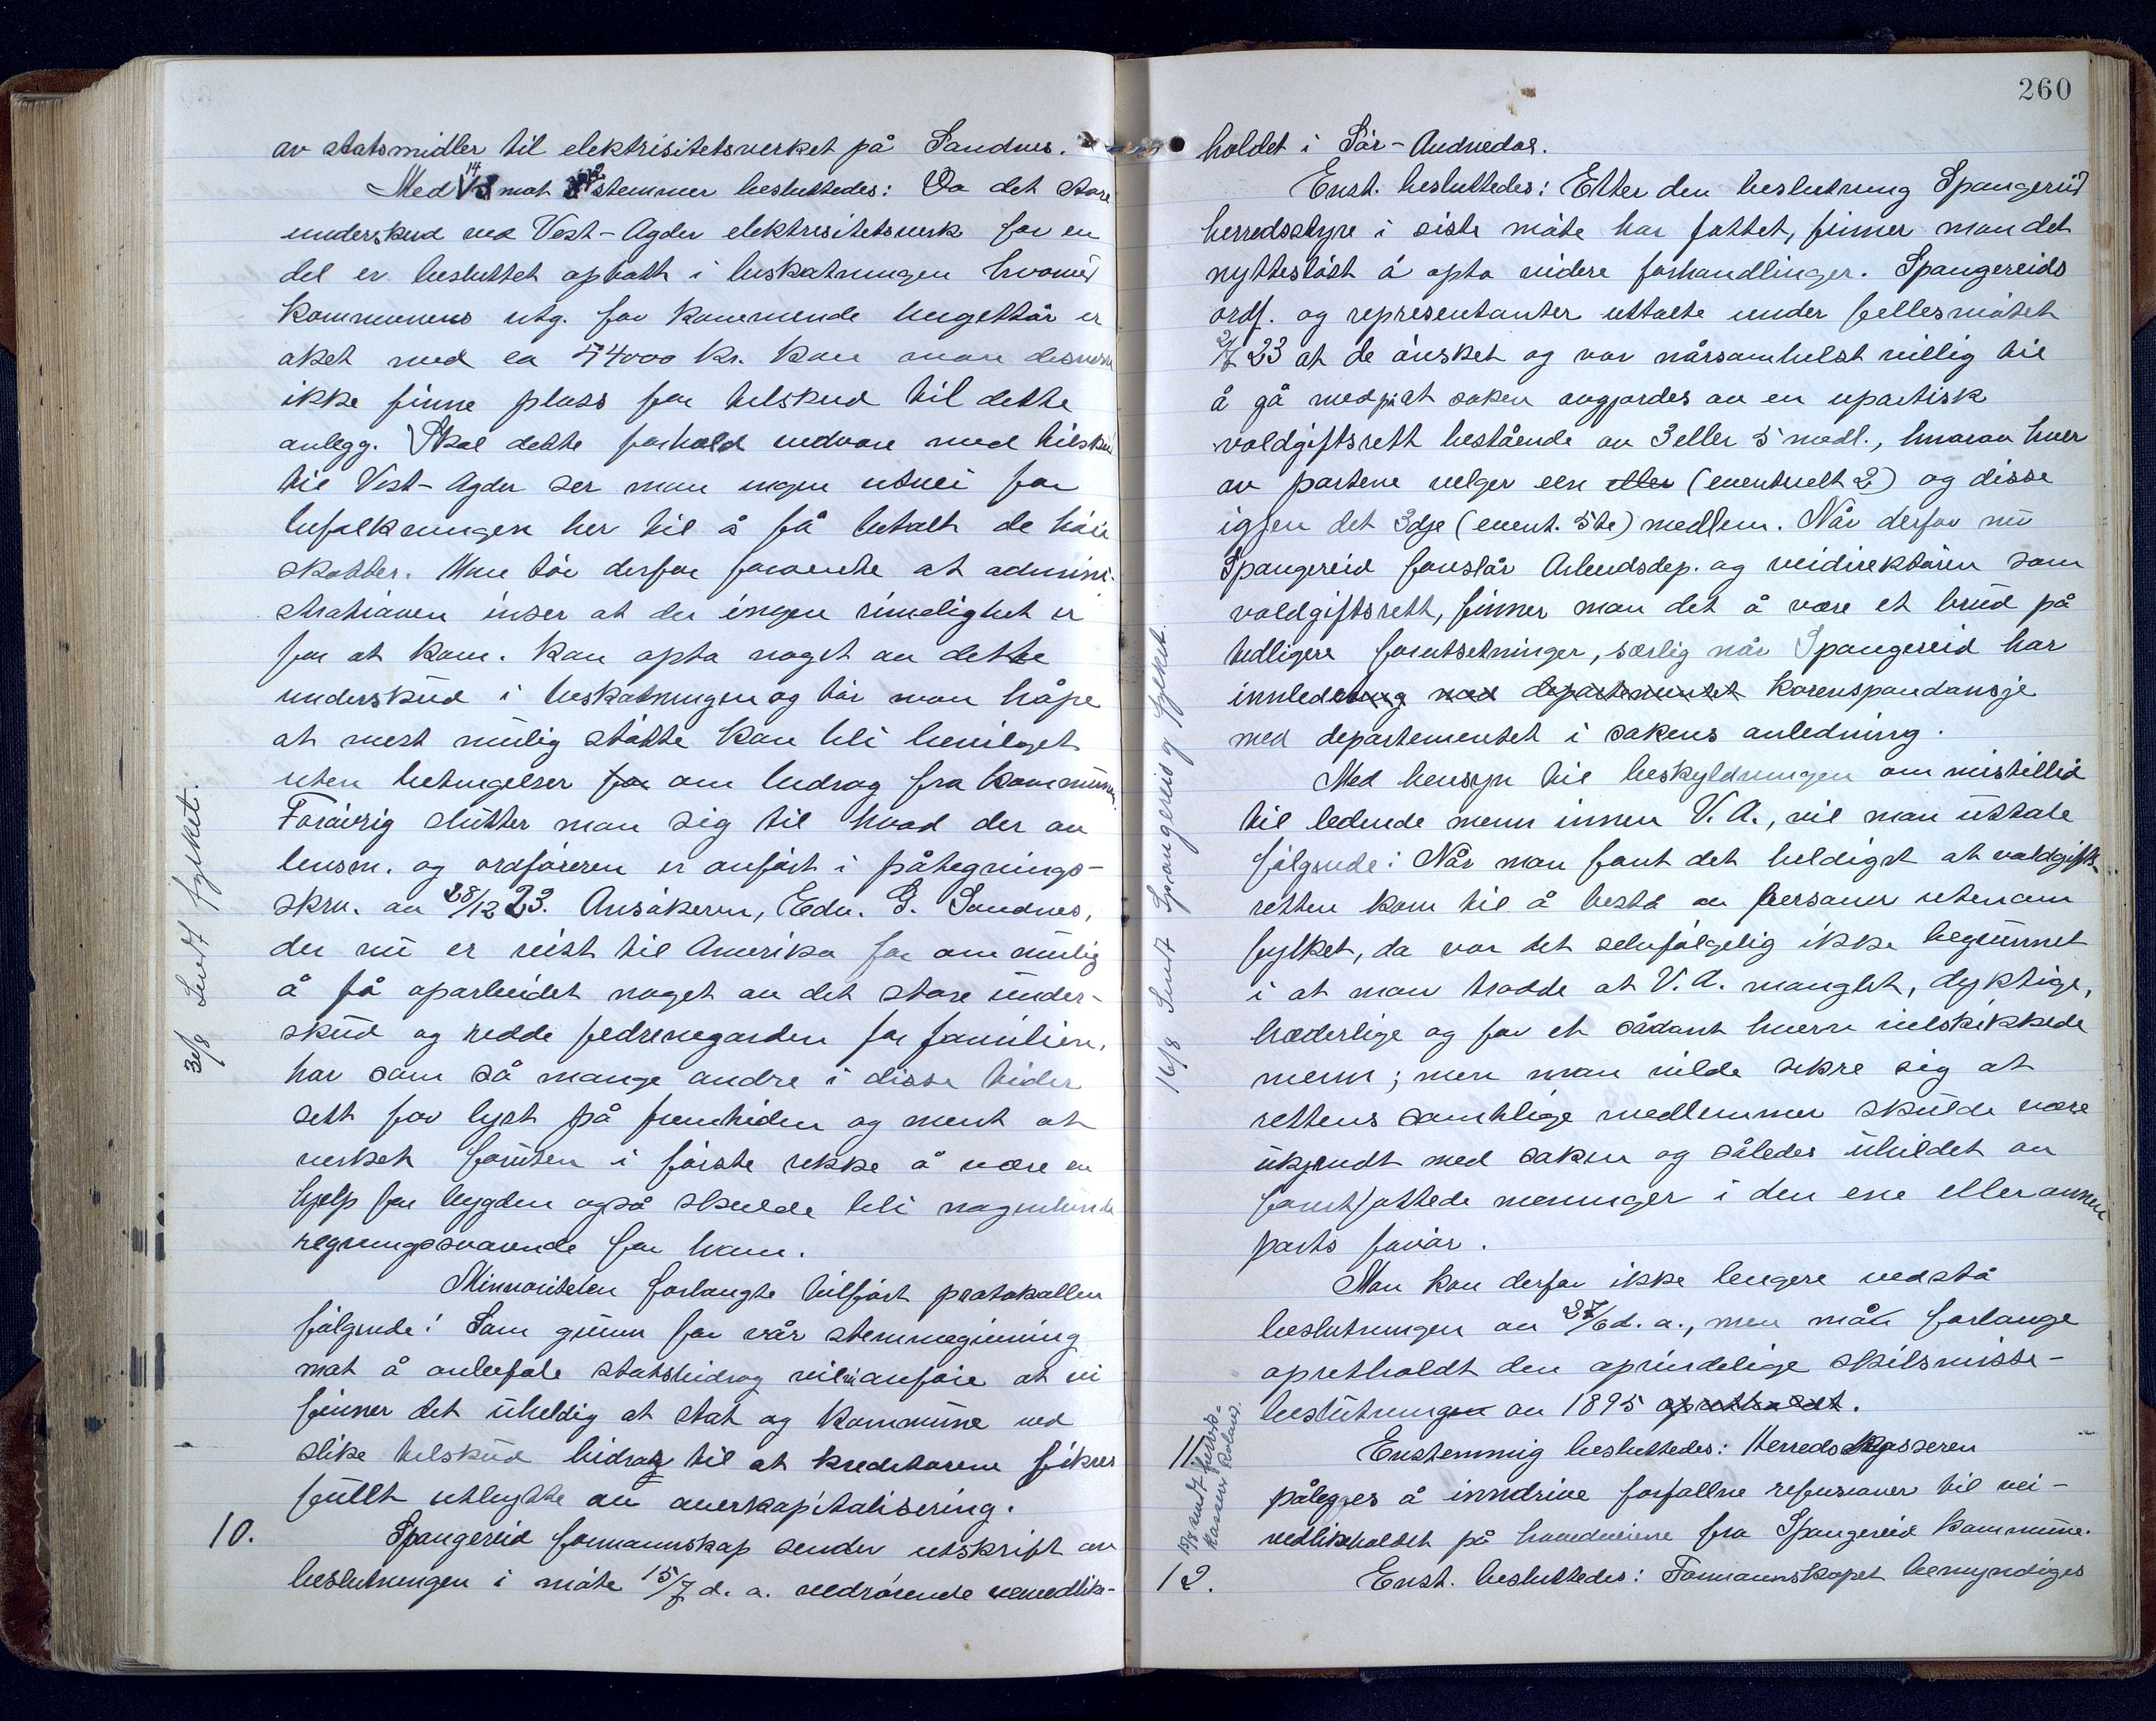 av statsmidler til elektrisitetsverket på Sandnes.
Med 14 mot stemmer besluttedes: Da det store
underskud ved Vest-Agder elektrisitetsverk for en
del er besluttet optatt i beskatningen hvorved
kommunens utg. for kommende bugettår er
øket med ca 54000 kr. kan man desverre
ikke finne plass for tilskud til dette
anlegg. Skal dette forhold vedvare med tilskud
til Vest-Agder ser man ingen utvei for
befolkningen her til å få betalt de høie
skatter. Man tør derfor forvente at admini-
strationen inser at der ingen rimelighet er
for at kom. kan opta noget av dette
underskud i beskatningen og tør man håpe
at mest mulig støtte kan bli bevilget
uten betingelser for om bidrag fra kommunen.
Forøvrig slutter man sig til hvad der av
lensm. og ordføreren er anført i påtegnings-
skru. av 28/12 23. Ansøkeren, Edv. G. Sandnes,
der nu er reist til Amerika for om mulig
å få oparbeidet noget av det store under-
skud og redde fedrenegarden for familien,
har som så mange andre i disse tider
sett for lyst på fremtiden og ment at
verket foruten i første rekke å være en
hjelp for bygden også skulde bli nogenlunde
regningssvarende for ham.
Minnoriteten forlangte tilført protokollen
følgende: Som grunn for vår stemmegivning
mot å anbefale statsbidrag vil vi anføie at vi
finner det uheldig at stat og kommune ved
slike tilskud bidrag til at kreditorene sikres
fullt utbytte av overkapitalisering.
10. Spangereid formannskap sender utskrift av
beslutningen i møte 15/7 d. a. vedrørende veivedlike-
31/8 Sendt fylket.
260
holdet i Sør-Audnedal.
Enst. besluttedes: Etter den beslutning Spangereid
herredsstyre i siste møte har fattet, finner man det
nyttesløst å opta videre forhandlinger. Spangereids
ordf. og representanter uttalte under fellesmøtet
2/7 23 at de ønsket og var nårsomhelst villig til
å gå med på at saken avgjordes av en upartisk
voldgiftsrett bestående av 3 eller 5 medl., hvorav hver
av partene velger een eller (eventuelt 2) og disse
igjen det 3dje (event. 5te) medlem. Når derfor nu
Spangereid foreslår Arbeidsdep. og veidirektøren som
voldgiftsrett, finner man det å være et brud på
tidligere forutsetninger, særlig når Spangereid har
innledet med departementet korrenspondansje
med departementet i sakens anledning.
Med hensyn til beskyldningen om mistillid
til ledende menn innen V. A., vil man uttale
følgende: Når man fant det heldigst at voldgifts-
retten kom til å bestå av personer utenom
fylket, da var det selvfølgelig ikke begrunnet
i at man trodde at V. A. manglet, dyktige,
hæderlige og for et sådant hverv velskikkede
menn; men man vilde sikre sig at
rettens samtlige medlemmer skulde være
ukjendt med saken og således uhildet av
forutfattede meninger i den ene eller annen
parts favør.
Man kan derfor ikke lengere vedstå
beslutningen av 27/6 d. a., men må forlange
opretholdt den oprindelige skilsmisse-
beslutningen av 1895 opretholdt.
11. Enstemmig besluttedes: Herredskasseren
pålegges å inndrive forfallne refusioner til vei-
vedlikeholdet på hovedveiene fra Spangereid kommune.
12. Enst. besluttedes: Formannskapet bemyndiges
16/8 Sendt Spangereid og fylket.
sendt herreds-
kasserer Roland.